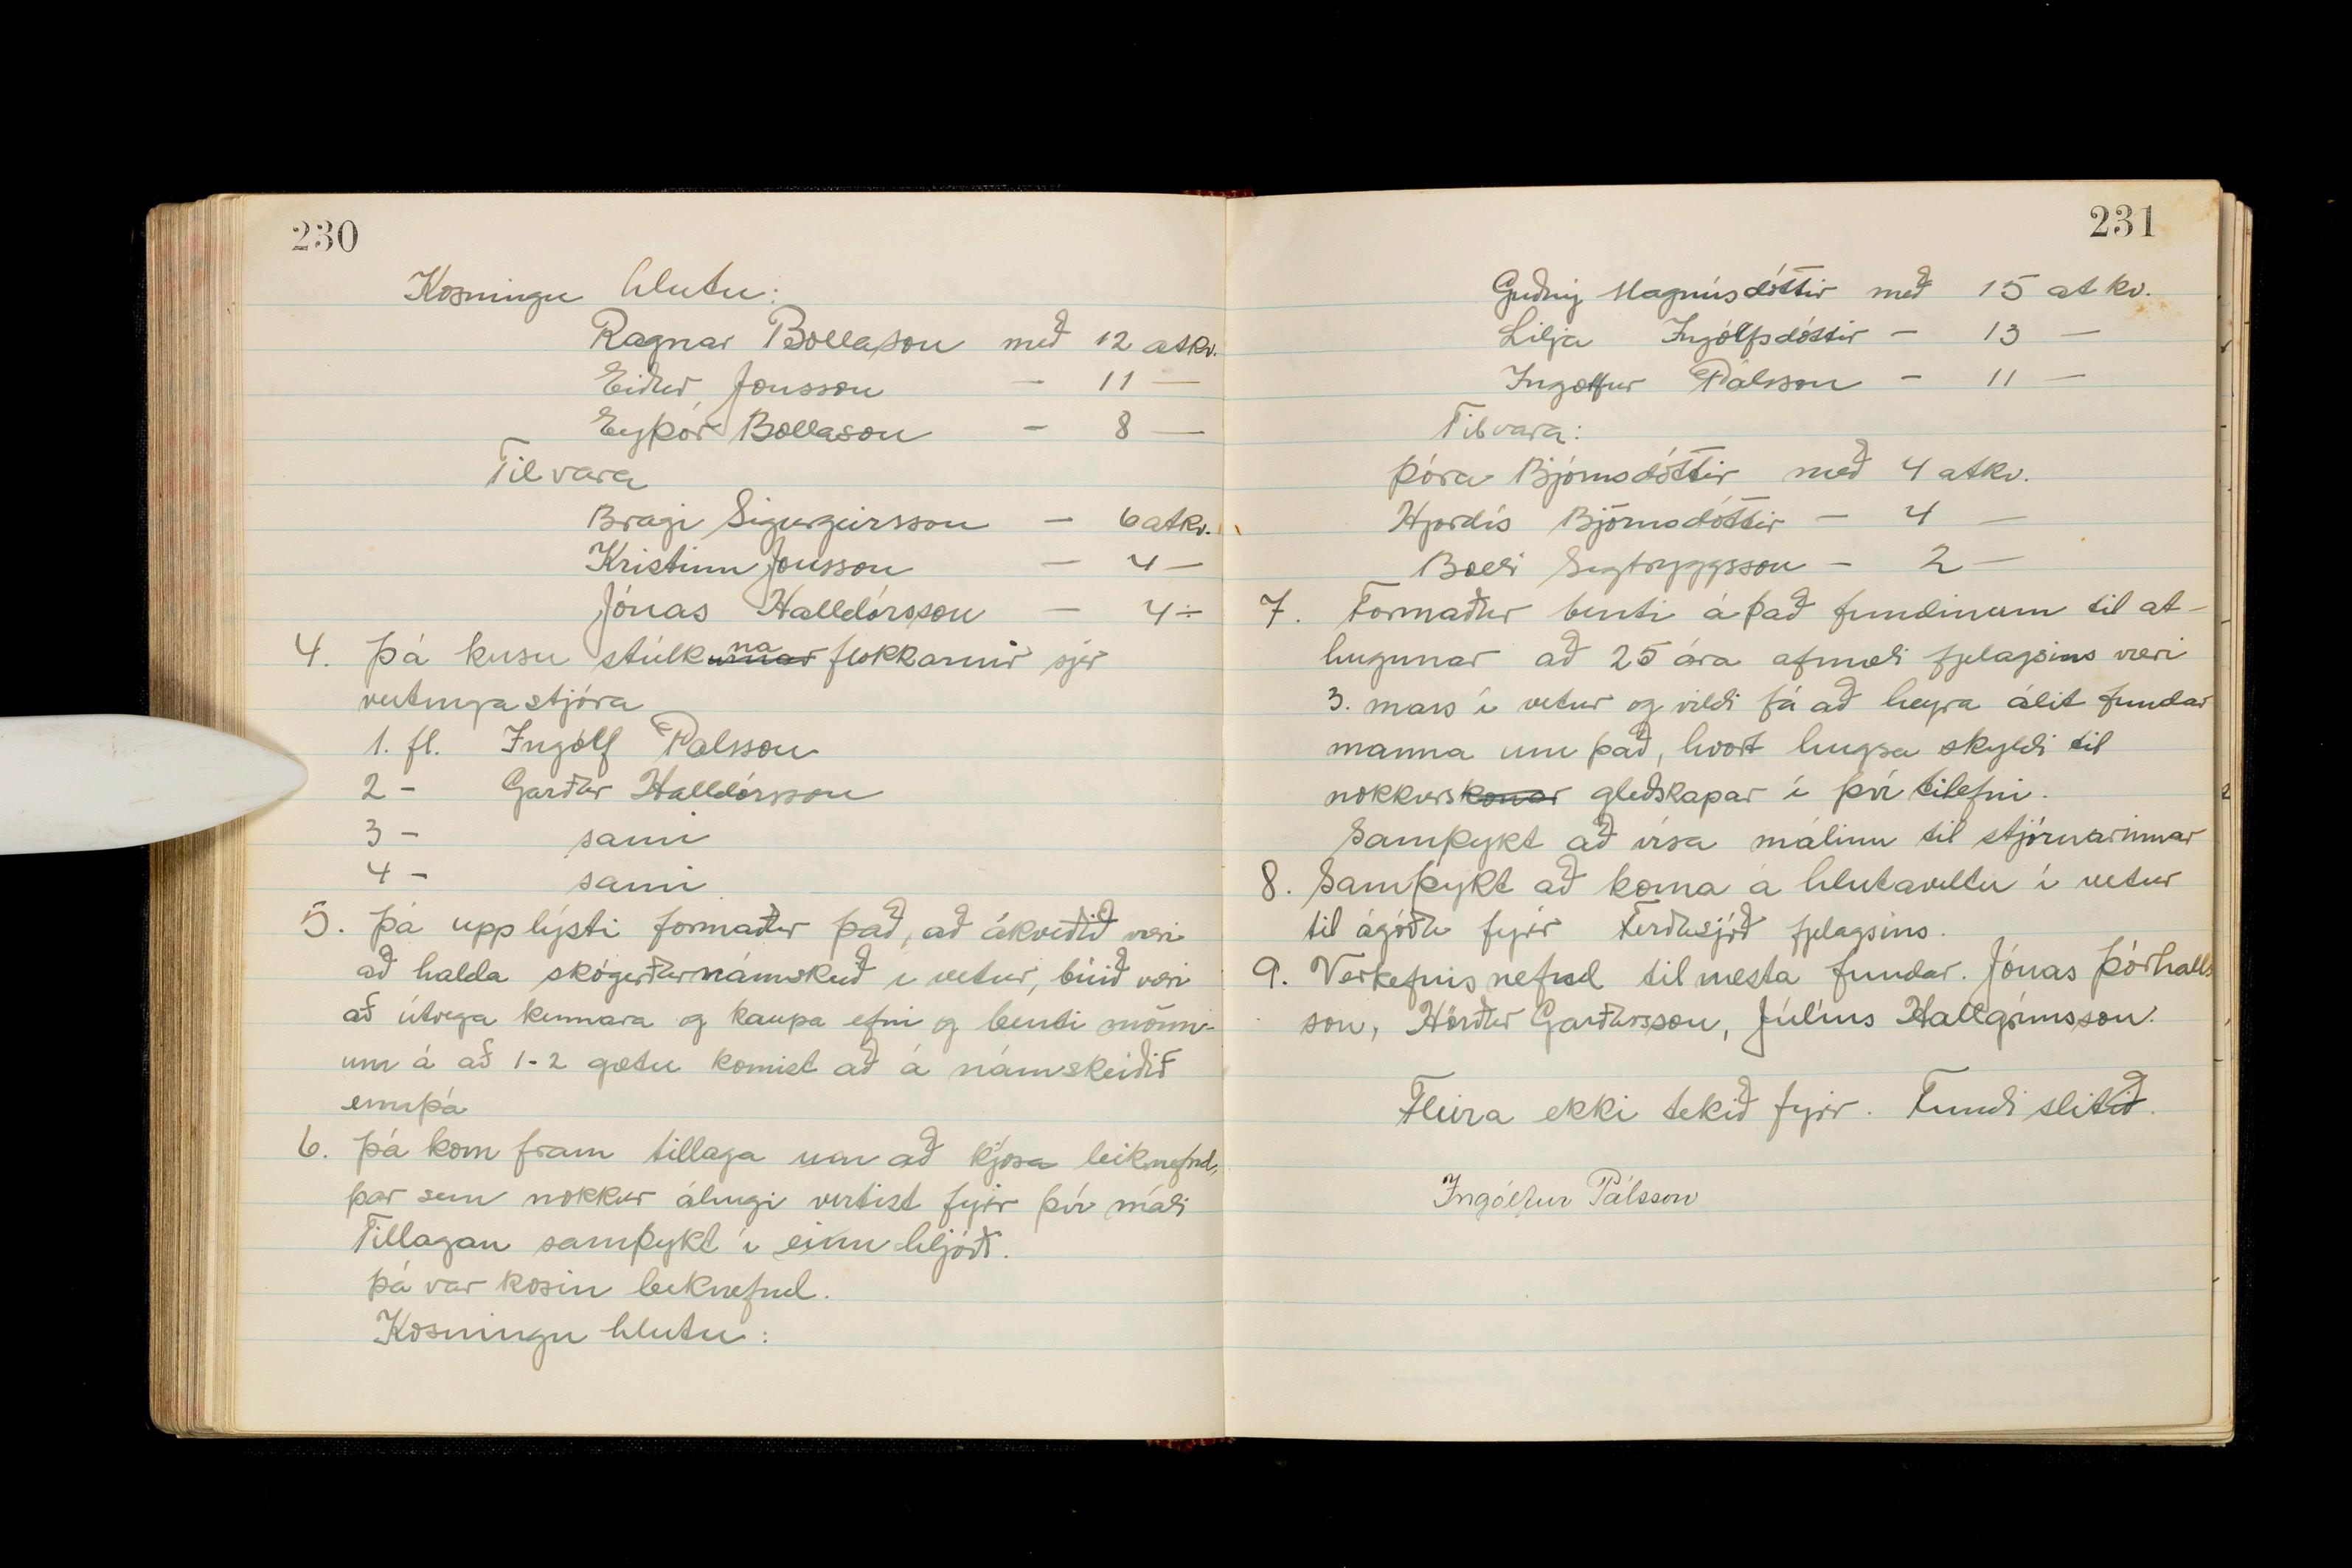 230
Kosningu hlutu:
Ragnar Bollason með 12 atkv.
Eiður Jónsson — 11 —
Eyþór Bollason — 8 —
Til vara
Bragi Sigurgeirsson — 6 atkv.
Kristinn Jónsson — 4 —
Jónas Halldórsson — 4 —
4. Þá kusu stúlkna flokkarnir sjer
vertingastjóra
1. fl. Ingólf Pálsson
2 - Garðar Halldórsson
3 - sami
4 - sami
5. Þá upplýsti formaður það, að ákveðið væri
að halda skógerðarnámskeið í vetur, búið væri
að útvega kennara og kaupa efni og benti mönn-
um á að 1-2 gætu komist að á námskeiðið
ennþá
6. Þá kom fram tillaga um að kjósa leiknefnd,
þar sem nokkur áhugi virtist fyrir því máli
Tillagan samþykt í einu hljóði.
Þá var kosin leiknefnd.
Kosningu hlutu:
231
Guðný Magnúsdóttir með 15 atkv.
Lilja Ingólfsdóttir — 13 —
Ingólfur Pálsson — 11 —
Til vara:
Þóra Björnsdóttir með 4 atkv.
Hjördís Björnsdóttir — 4 —
Bolli Sigtryggsson — 2 —
7. Formaður benti á það fundinum til at-
hugunar að 25 ára afmæli fjelagsins væri
3. mars í vetur og vildi fá að heyra álit fundar
manna um það, hvort hugsa skyldi til
nokkurs konar gleðskapar í því tilefni.
Samþykt að vísa málinu til stjórnarinnar
8. Samþykt að koma á hlutaveltu í vetur
til ágóða fyrir Ferðasjóð fjelagsins.
9. Verkefnisnefnd til næsta fundar. Jónas Þórhalls
son, Hörður Garðarsson, Júlíus Hallgrímsson.
Fleira ekki tekið fyrir. Fundi slitið.
Ingólfur Pálsson